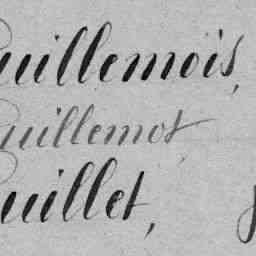 uillemois,
uillemot,
uillet,